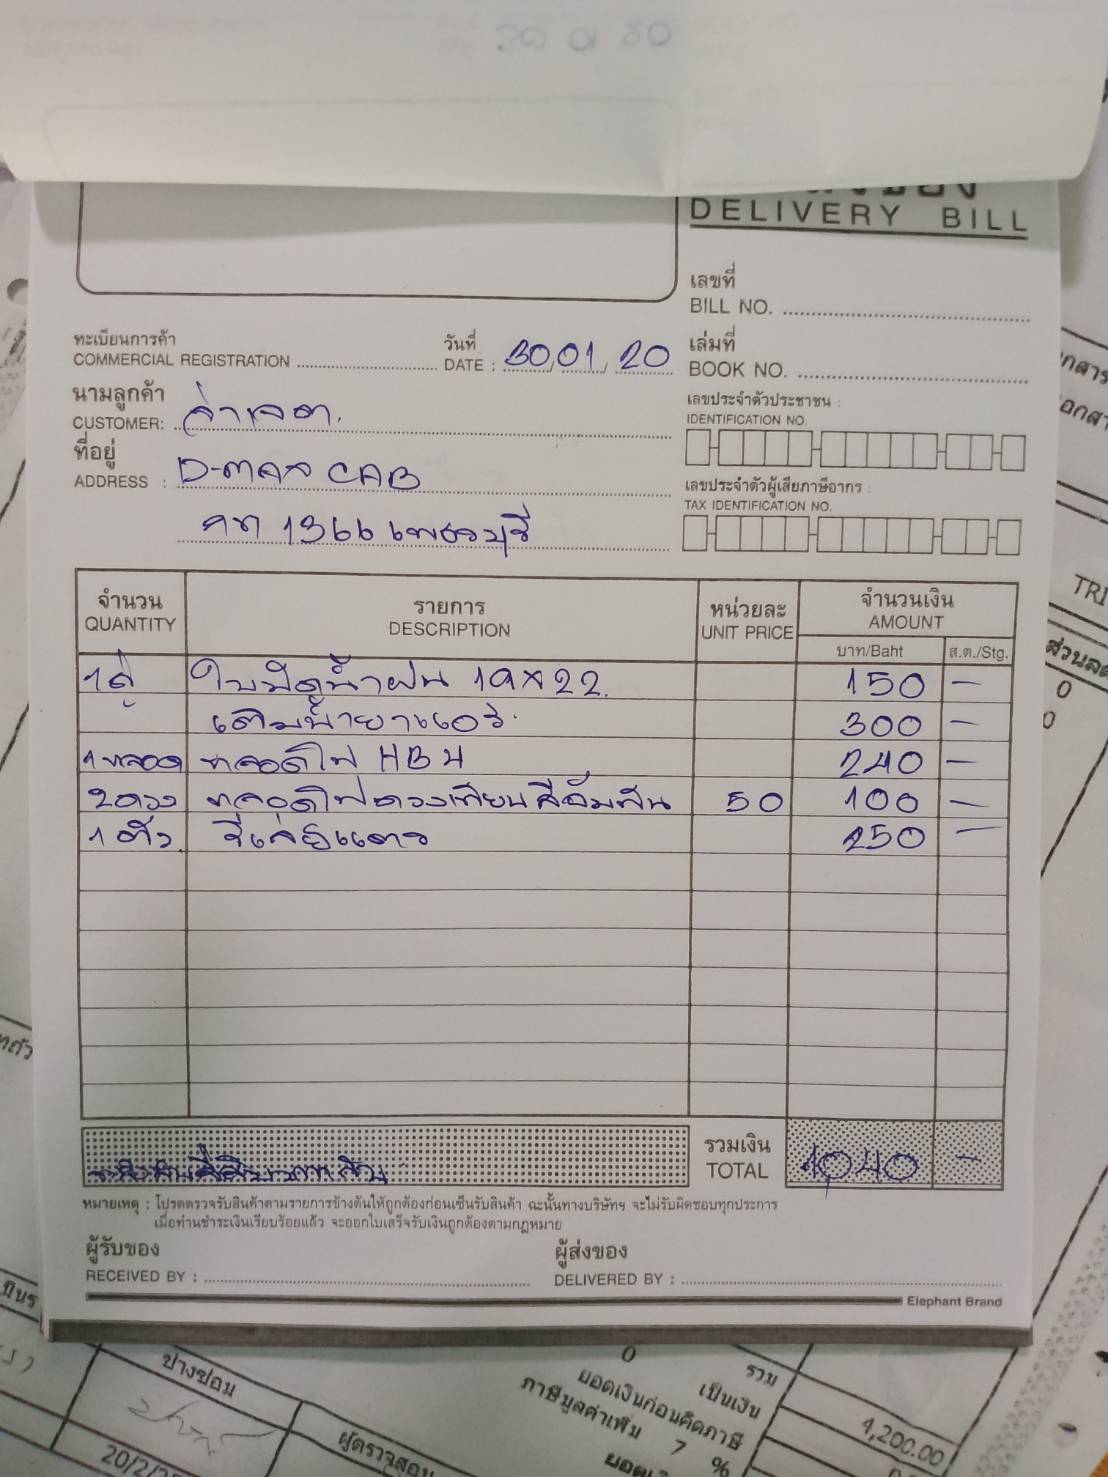 DELIVERY BILL
เลขที่
BILL NO.
ทะเบียนการค้า
COMMERCIAL REGISTRATION
วันที่
DATE : 30/01/20
เล่มที่
BOOK NO.
นามลูกค้า
CUSTOMER:
เลขประจำตัวประชาชน :
IDENTIFICATION NO.
ที่อยู่
ADDRESS : D-MAX CAB
เลขประจำตัวผู้เสียภาษีอากร :
TAX IDENTIFICATION NO.
1366 เพชรบุรี
จำนวน รายการ หน่วยละ จำนวนเงิน
QUANTITY DESCRIPTION UNIT PRICE AMOUNT
บาท/Baht ส.ต./Stg.
1คู่ ใบปัดน้ำฝน 19x22 150 -
เติมน้ำยาแอร์ 300 -
1หลอด หลอดไฟ HB4 240 -
2ดวง หลอดไฟดวงเทียนสีอัมพัน 50 100 -
1 ตัว รีเลย์แตร 250 -
รวมเงิน
TOTAL 1,040 -
หมายเหตุ : โปรดตรวจรับสินค้าตามรายการข้างต้นให้ถูกต้องก่อนเซ็นรับสินค้า ฉะนั้นทางบริษัทฯ จะไม่รับผิดชอบทุกประการ
เมื่อท่านชำระเงินเรียบร้อยแล้ว จะออกใบเสร็จรับเงินถูกต้องตามกฎหมาย
ผู้รับของ
RECEIVED BY :
ผู้ส่งของ
DELIVERED BY :
Elephant Brand
TRI
ส่วนลด
0
0
ปางซ่อม
ผู้ตรวจสอบ
20/2/
0
รวม
เป็นเงิน
ยอดเงินก่อนคิดภาษี
ภาษีมูลค่าเพิ่ม 7 %
4,200.00